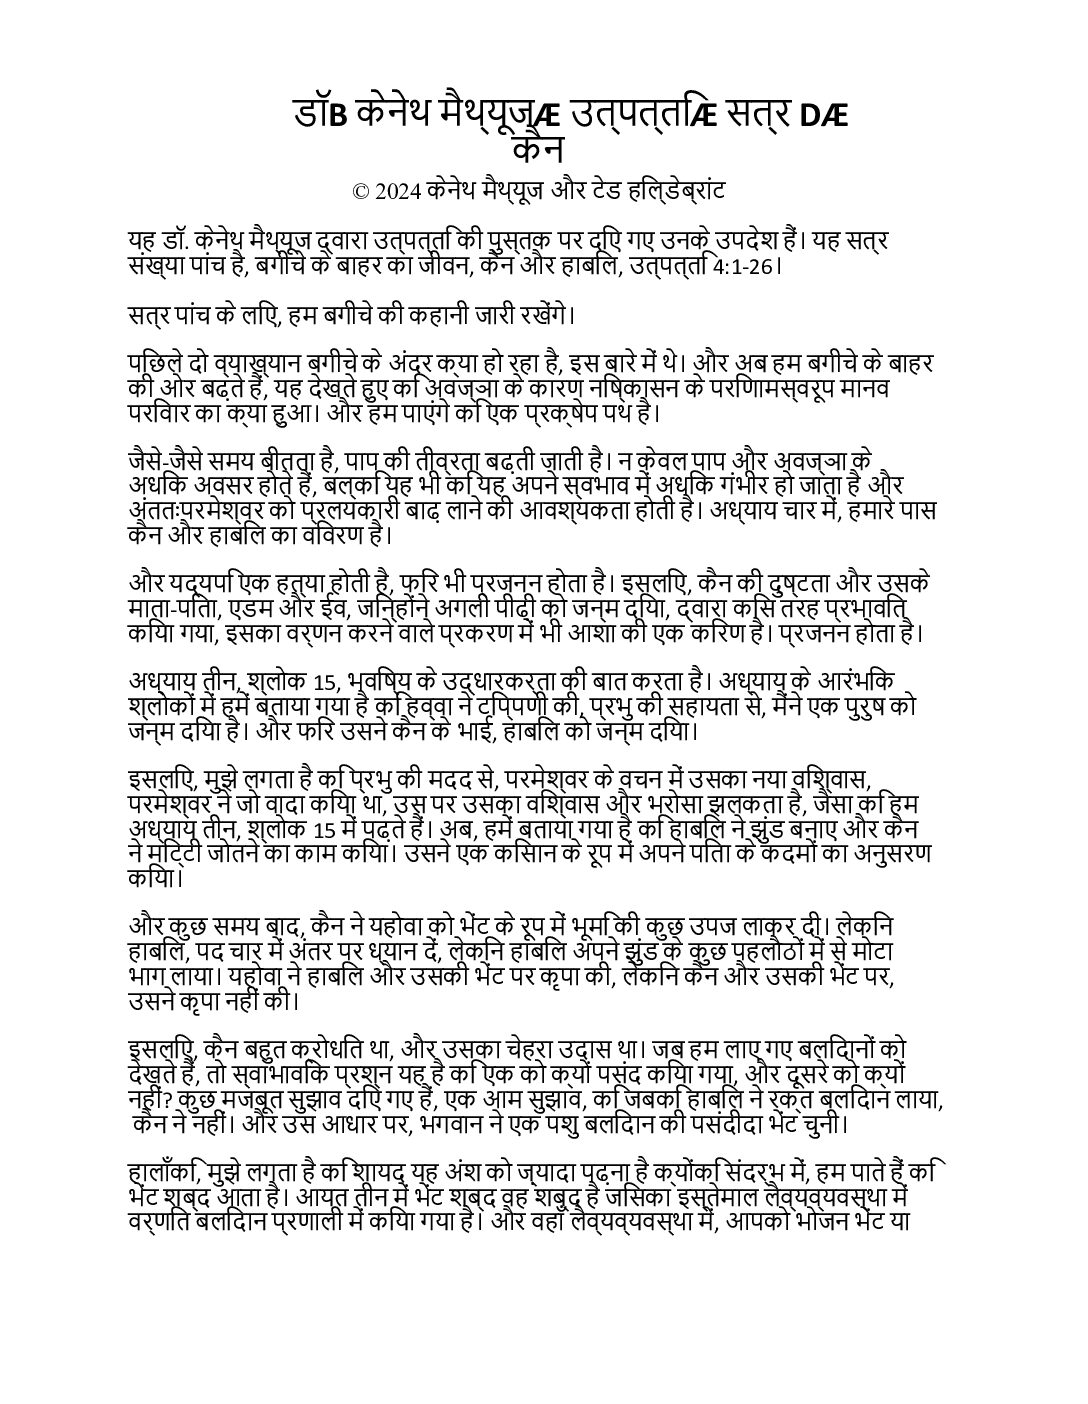 डॉB केनेथ मैथ्यूजÆ उत्पत्तिÆ सत्र DÆ
कैन
© 2024 केनेथ मैथ्यूज और टेड हिल्डेब्रांट
यह डॉ. केनेथ मैथ्यूज द्वारा उत्पत्ति की पुस्तक पर दिए गए उनके उपदेश हैं। यह सत्र
संख्या पांच है, बगीचे के बाहर का जीवन, कैन और हाबिल, उत्पत्ति 4:1-26।
सत्र पांच के लिए, हम बगीचे की कहानी जारी रखेंगे।
पिछले दो व्याख्यान बगीचे के अंदर क्या हो रहा है, इस बारे में थे। और अब हम बगीचे के बाहर
की ओर बढ़ते हैं, यह देखते हुए कि अवज्ञा के कारण निष्कासन के परिणामस्वरूप मानव
परिवार का क्या हुआ। और हम पाएंगे कि एक प्रक्षेप पथ है।
जैसे-जैसे समय बीतता है, पाप की तीव्रता बढ़ती जाती है। न केवल पाप और अवज्ञा के
अधिक अवसर होते हैं, बल्कि यह भी कि यह अपने स्वभाव में अधिक गंभीर हो जाता है और
अंततः परमेश्वर को प्रलयकारी बाढ़ लाने की आवश्यकता होती है। अध्याय चार में, हमारे पास
कैन और हाबिल का विवरण है।
और यद्यपि एक हत्या होती है, फिर भी प्रजनन होता है। इसलिए, कैन की दुष्टता और उसके
माता-पिता, एडम और ईव, जिन्होंने अगली पीढ़ी को जन्म दिया, द्वारा किस तरह प्रभावित
किया गया, इसका वर्णन करने वाले प्रकरण में भी आशा की एक किरण है। प्रजनन होता है।
अध्याय तीन, श्लोक 15, भविष्य के उद्धारकर्ता की बात करता है। अध्याय के आरंभिक
श्लोकों में हमें बताया गया है कि हव्वा ने टिप्पणी की, प्रभु की सहायता से, मैंने एक पुरुष को
जन्म दिया है। और फिर उसने कैन के भाई, हाबिल को जन्म दिया।
इसलिए, मुझे लगता है कि प्रभु की मदद से, परमेश्वर के वचन में उसका नया विश्वास,
परमेश्वर ने जो वादा किया था, उस पर उसका विश्वास और भरोसा झलकता है, जैसा कि हम
अध्याय तीन, श्लोक 15 में पढ़ते हैं। अब, हमें बताया गया है कि हाबिल ने झुंड बनाए और कैन
ने मिट्टी जोतने का काम किया। उसने एक किसान के रूप में अपने पिता के कदमों का अनुसरण
किया।
और कुछ समय बाद, कैन ने यहोवा को भेंट के रूप में भूमि की कुछ उपज लाकर दी। लेकिन
हाबिल, पद चार में अंतर पर ध्यान दें, लेकिन हाबिल अपने झुंड के कुछ पहलौठों में से मोटा
भाग लाया। यहोवा ने हाबिल और उसकी भेंट पर कृपा की, लेकिन कैन और उसकी भेंट पर,
उसने कृपा नहीं की।
इसलिए, कैन बहुत क्रोधित था, और उसका चेहरा उदास था। जब हम लाए गए बलिदानों को
देखते हैं, तो स्वाभाविक प्रश्न यह है कि एक को क्यों पसंद किया गया, और दूसरे को क्यों
नहीं? कुछ मजबूत सुझाव दिए गए हैं, एक आम सुझाव, कि जबकि हाबिल ने रक्त बलिदान लाया,
कैन ने नहीं। और उस आधार पर, भगवान ने एक पशु बलिदान की पसंदीदा भेंट चुनी।
हालाँकि, मुझे लगता है कि शायद यह अंश को ज्यादा पढ़ना है क्योंकि संदर्भ में, हम पाते हैं कि
भेंट शब्द आता है। आयत तीन में भेंट शब्द वह शब्द है जिसका इस्तेमाल लैव्यव्यवस्था में
वर्णित बलिदान प्रणाली में किया गया है। और वहाँ लैव्यव्यवस्था में, आपको भोजन भेंट या